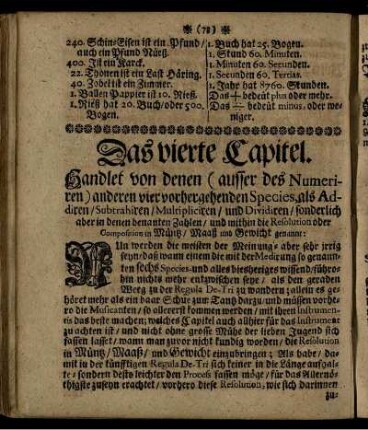 (78)
240. Schin-Eisen ist ein Pfund/
auch ein Pfund Nüeß.
400. Ist ein Karck.
22. Thonen ist ein Last Häring.
40. Zobel ist ein Zimmer.
1. Ballen Pappier ist 10. Rieß.
1. Rieß hat 20. Buch/oder 500.
Bogen.
1. Buch hat 25. Bogen.
1. Stund 60. Minuten.
1. Minuten 60. Secunden.
1. Secunden 60. Tertias.
1. Jahr hat 8760. Stunden.
Das ÷ bedeüt plus oder mehr.
Das ÷ bedeüt minus, oder we-
niger.
Das vierte Capitel.
Handlet von denen (ausser des Numeri-
ren) anderen vier vorhergehenden Species, als Ad-
diren/Subtrahiren/Multipliciren/und Dividiren/sonderlich
aber in denen benanten Zahlen/und mithin die Resolution oder
Composition in Müntz/Maaß und Gewicht genannt:
Nun werden die meisten der Meinung, aber sehr irrig
seyn/daß wann einem die mit der Medirung so genann-
ten sechs Species, und alles bisheriges wissend/führo-
hin nichts mehr entzwischen seye/als den geraden
Weeg zu der Regula De-Tri zu wandern/allein es ge-
höret mehr als ein baar Schüe zum Tantz darzu/und müssen vorhe-
ro die Musicanten/so allererst kommen werden/mit ihren Instrumen-
tis das beste machen; welches Capitel auch allhier für das Instrument
zu achten ist/und nicht ohne grosse Mühe der lieben Jugend sich
fassen lasset/wann man zuvor nicht kundig worden/die Resolution
in Müntz/Maaß/und Gewicht einzubringen; Als habe/da-
mit in der künfftigen Regula De-Tri sich keiner in die Länge aufhal-
te/sondern desto leichter den Process fassen möge/für das Allernö-
thigste zuseyn erachtet/vorhero diese Resolution, wie sich darinnen
zu-